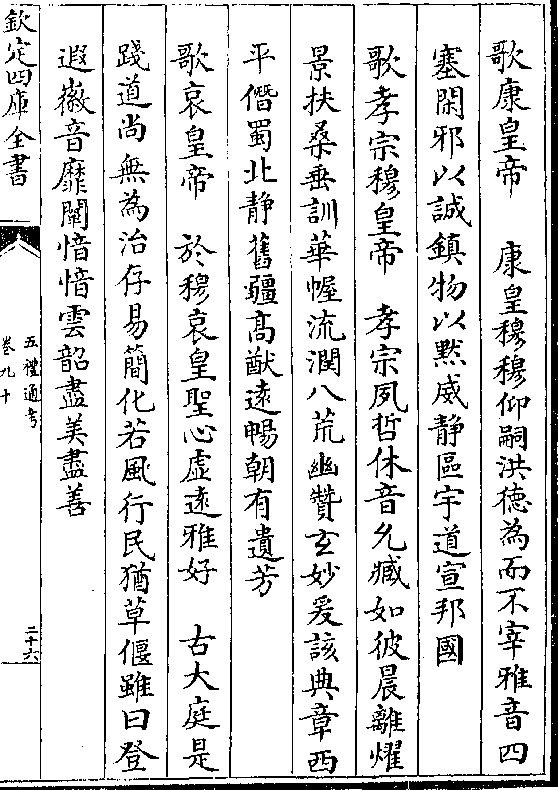 歌康皇帝　康皇穆穆仰嗣洪德為而不宰雅音四
塞閑邪以誠鎮物以黙威静區宇道宣邦國
歌孝宗穆皇帝　孝宗夙哲休音允臧如彼晨離燿
景扶桑垂訓華幄流潤八荒幽贊玄妙爰該典章西
平僭蜀北静舊疆高猷逺暢朝有遺芳
歌哀皇帝　於穆哀皇聖心虚逺雅好　古大庭是
踐道尚無為治存易簡化若風行民猶草偃雖曰登
遐徽音靡闡愔愔雲韶盡美盡善
欽定四庫全書
五禮通考
卷九十
二十六